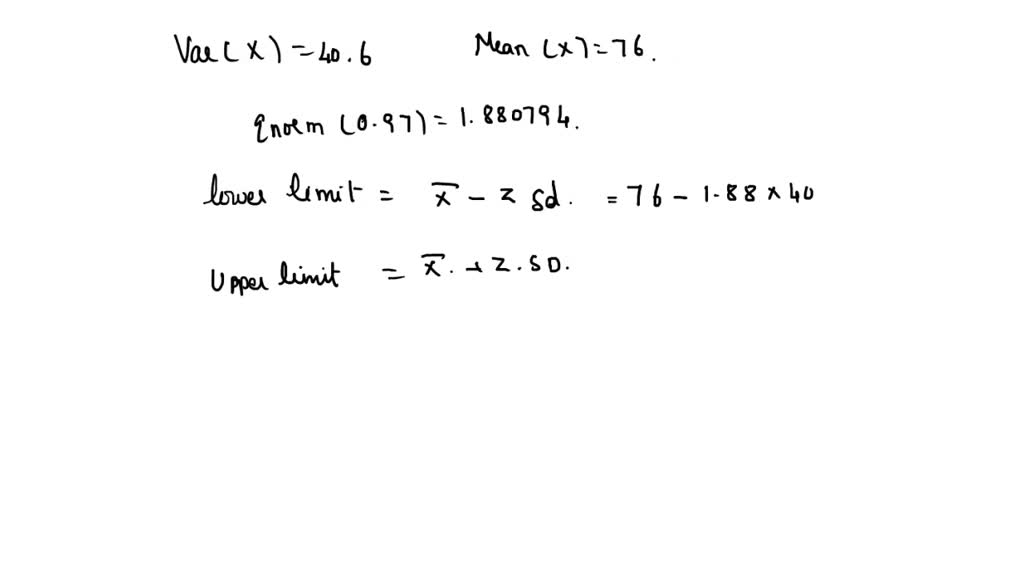 Var(X) = 40.6 Mean (X) = 76.
qnorm (0.97) = 1.880794.
lower limit = x̄ - z sd. = 76 - 1.88 × 40
Upper limit = x̄. + Z. SD.